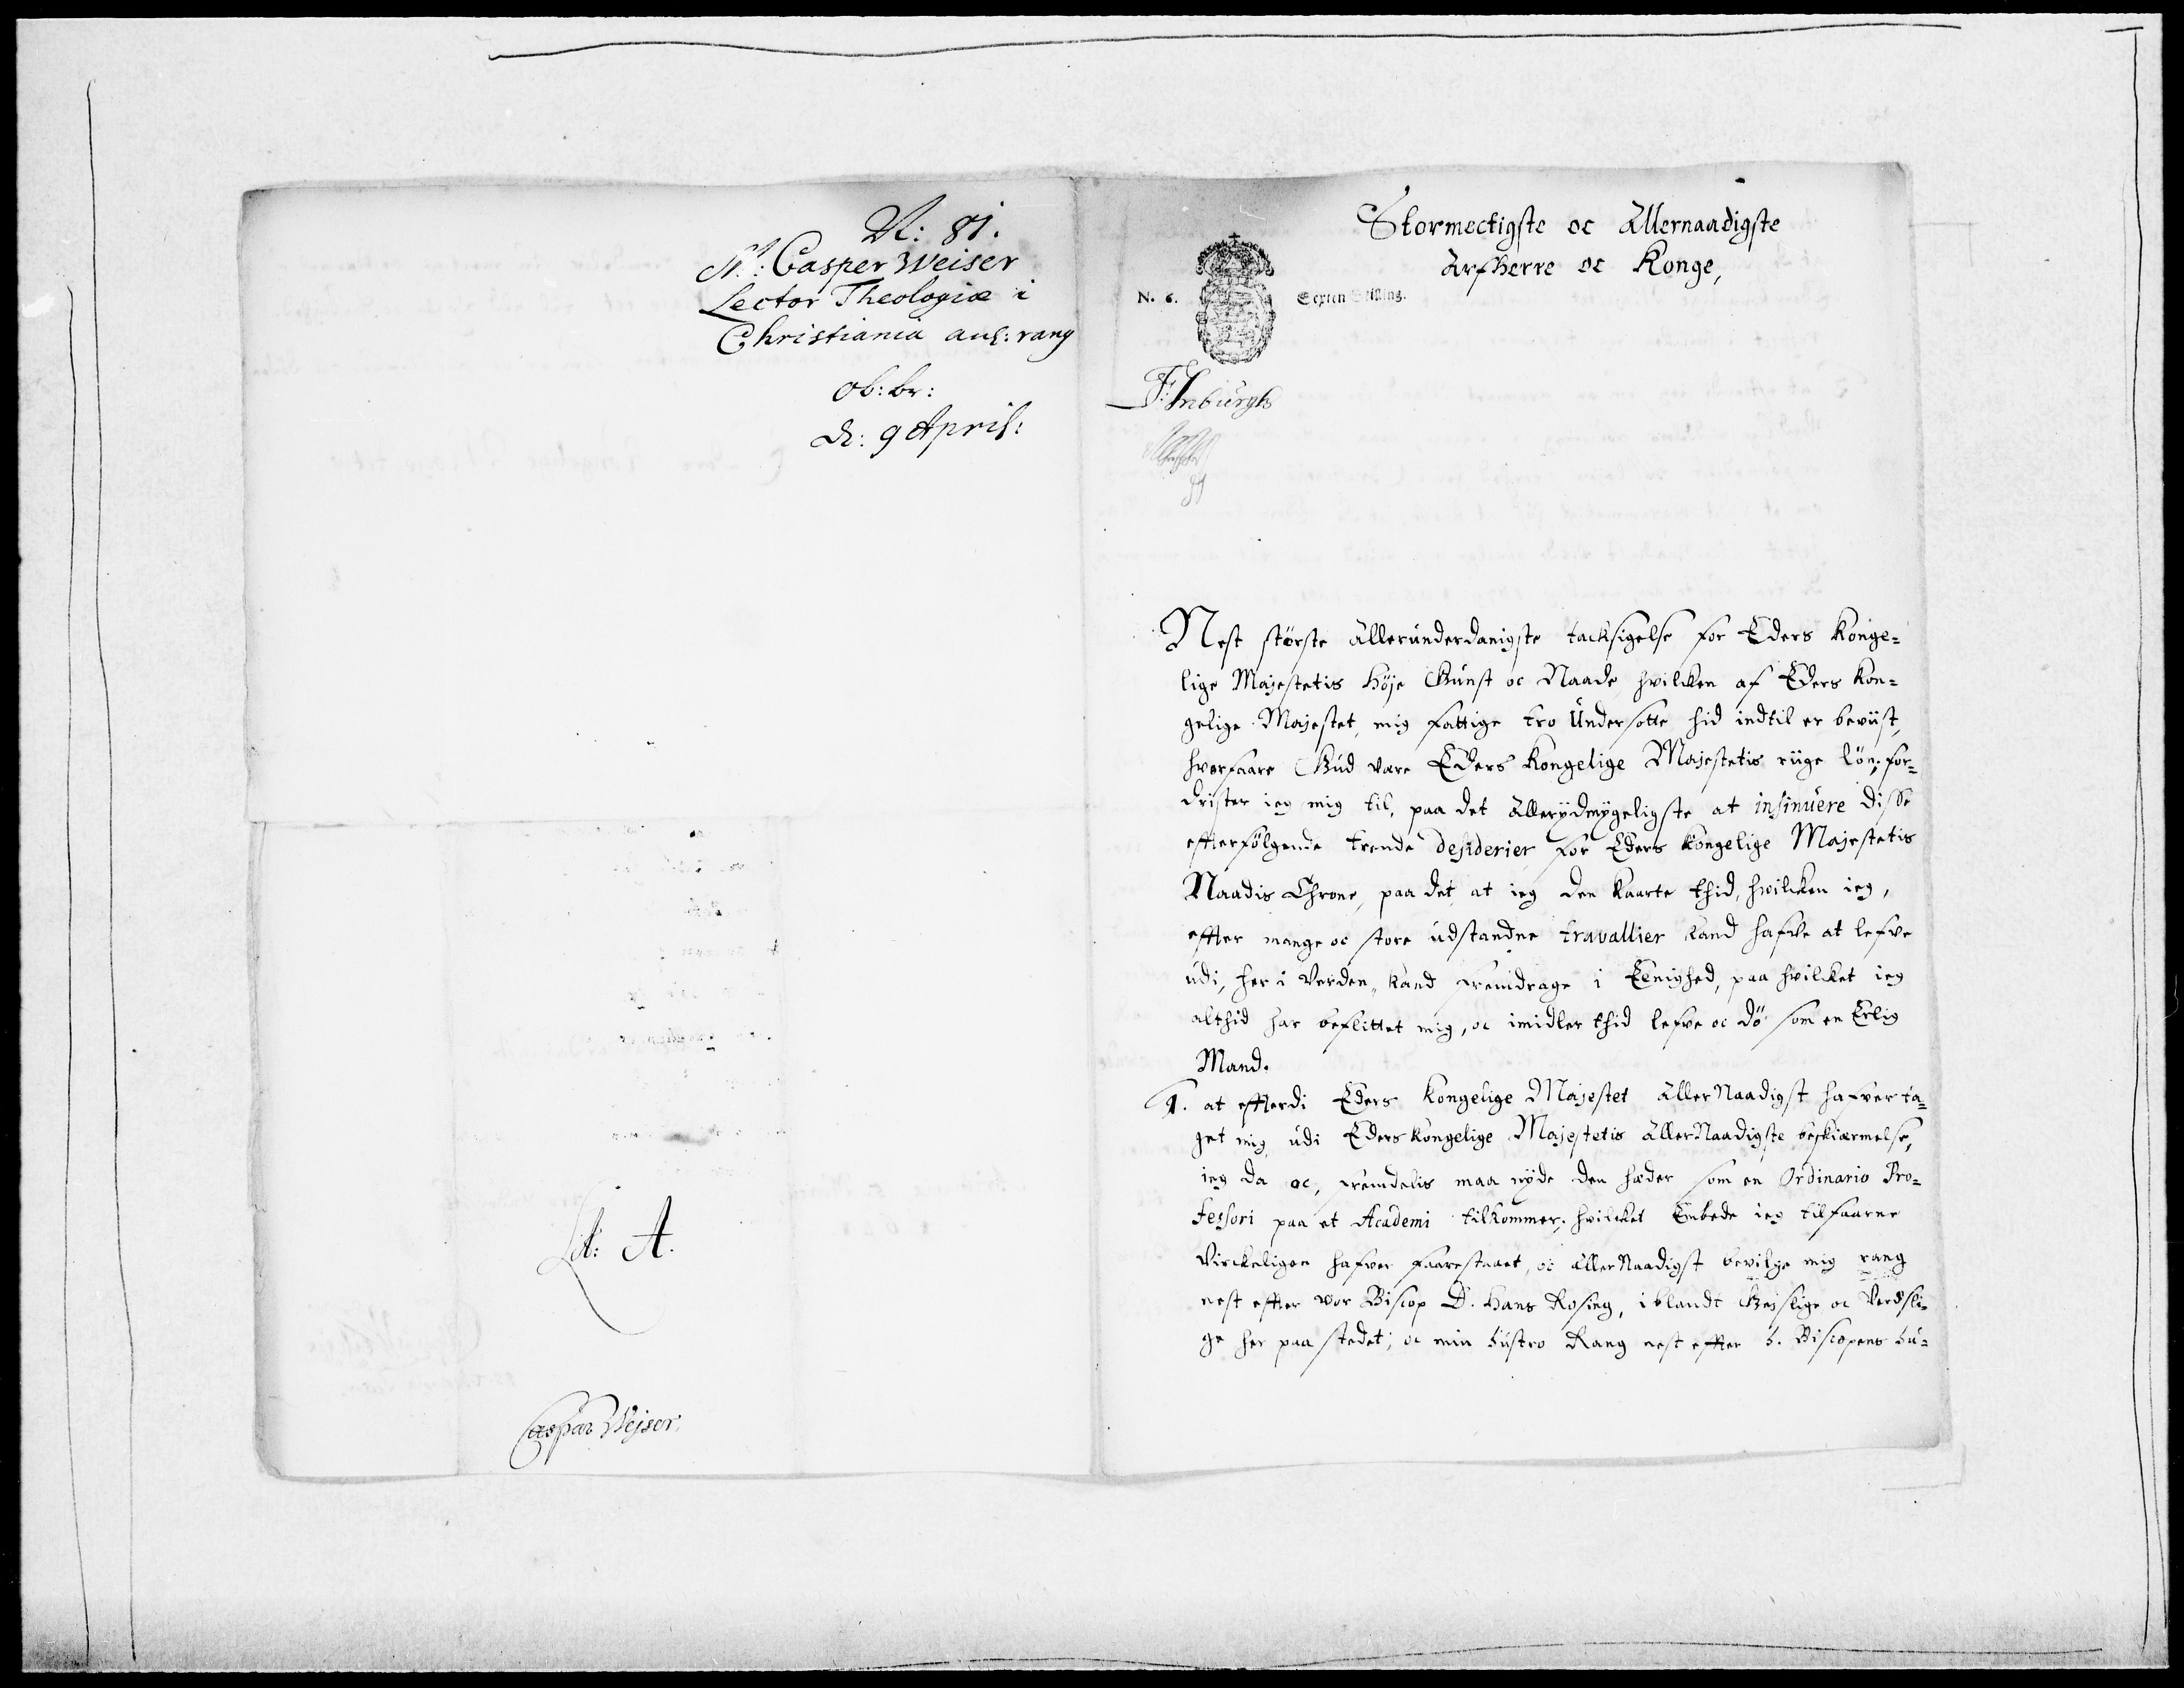 N: 81.
M: Casper Weiser
Lector Theologiæ i
Christiania anl: rang
ob: br:
d: 9 April:
Lit: A.
Caspar Wejser.
Stormectigste oc Allernaadigste
Arfherre oc Konge,
N. 6. Sexten Skilling.
Nest störste allerunderdanigste tacksigelse for Eders Konge-
lige Majestetis höje Gunst oc Naade hvilcken af Eders Kon-
gelige Majestet, mig fattige tro Undersotte hid indtil er beviist,
hvorfaare Gud vare Eders Kongelige Majestetis riige lön; for-
drister ieg mig til, paa det allerydmygeligste at insinuere disse
effterfölgende trende desiderier for Eders Kongelige Majestetis
Naadis Throne, paa det at ieg den kaarte thid, hvilcken ieg,
effter mange oc store udstandne travallier kand hafve at lefve
udi, her i Verden, kand fremdrage i Eenighed, paa hvilcket ieg
althid har beflittet mig, oc imidler thid lefve oc dö som en Erlig
Mand.
1. at effterdi Eders Kongelige Majestet AllerNaadigst hafver ta-
get mig udi Eders Kongelige Majestetis AllerNaadigste beskiærmelse,
ieg da oc, fremdelis maa nyde den hæder som en Ordinario Pro-
fessori paa et Academi tilkommer; hvilcket Embede ieg tilfaarne
Virckeligen hafver faarestaaet, oc AllerNaadigst bevilge mig rang
nest effter vor Biscop D. Hans Rosing, iblandt Gejslige oc Verdsli-
ge her paa stedet; oc min hustro Rang nest effter h. Biscopens hu-